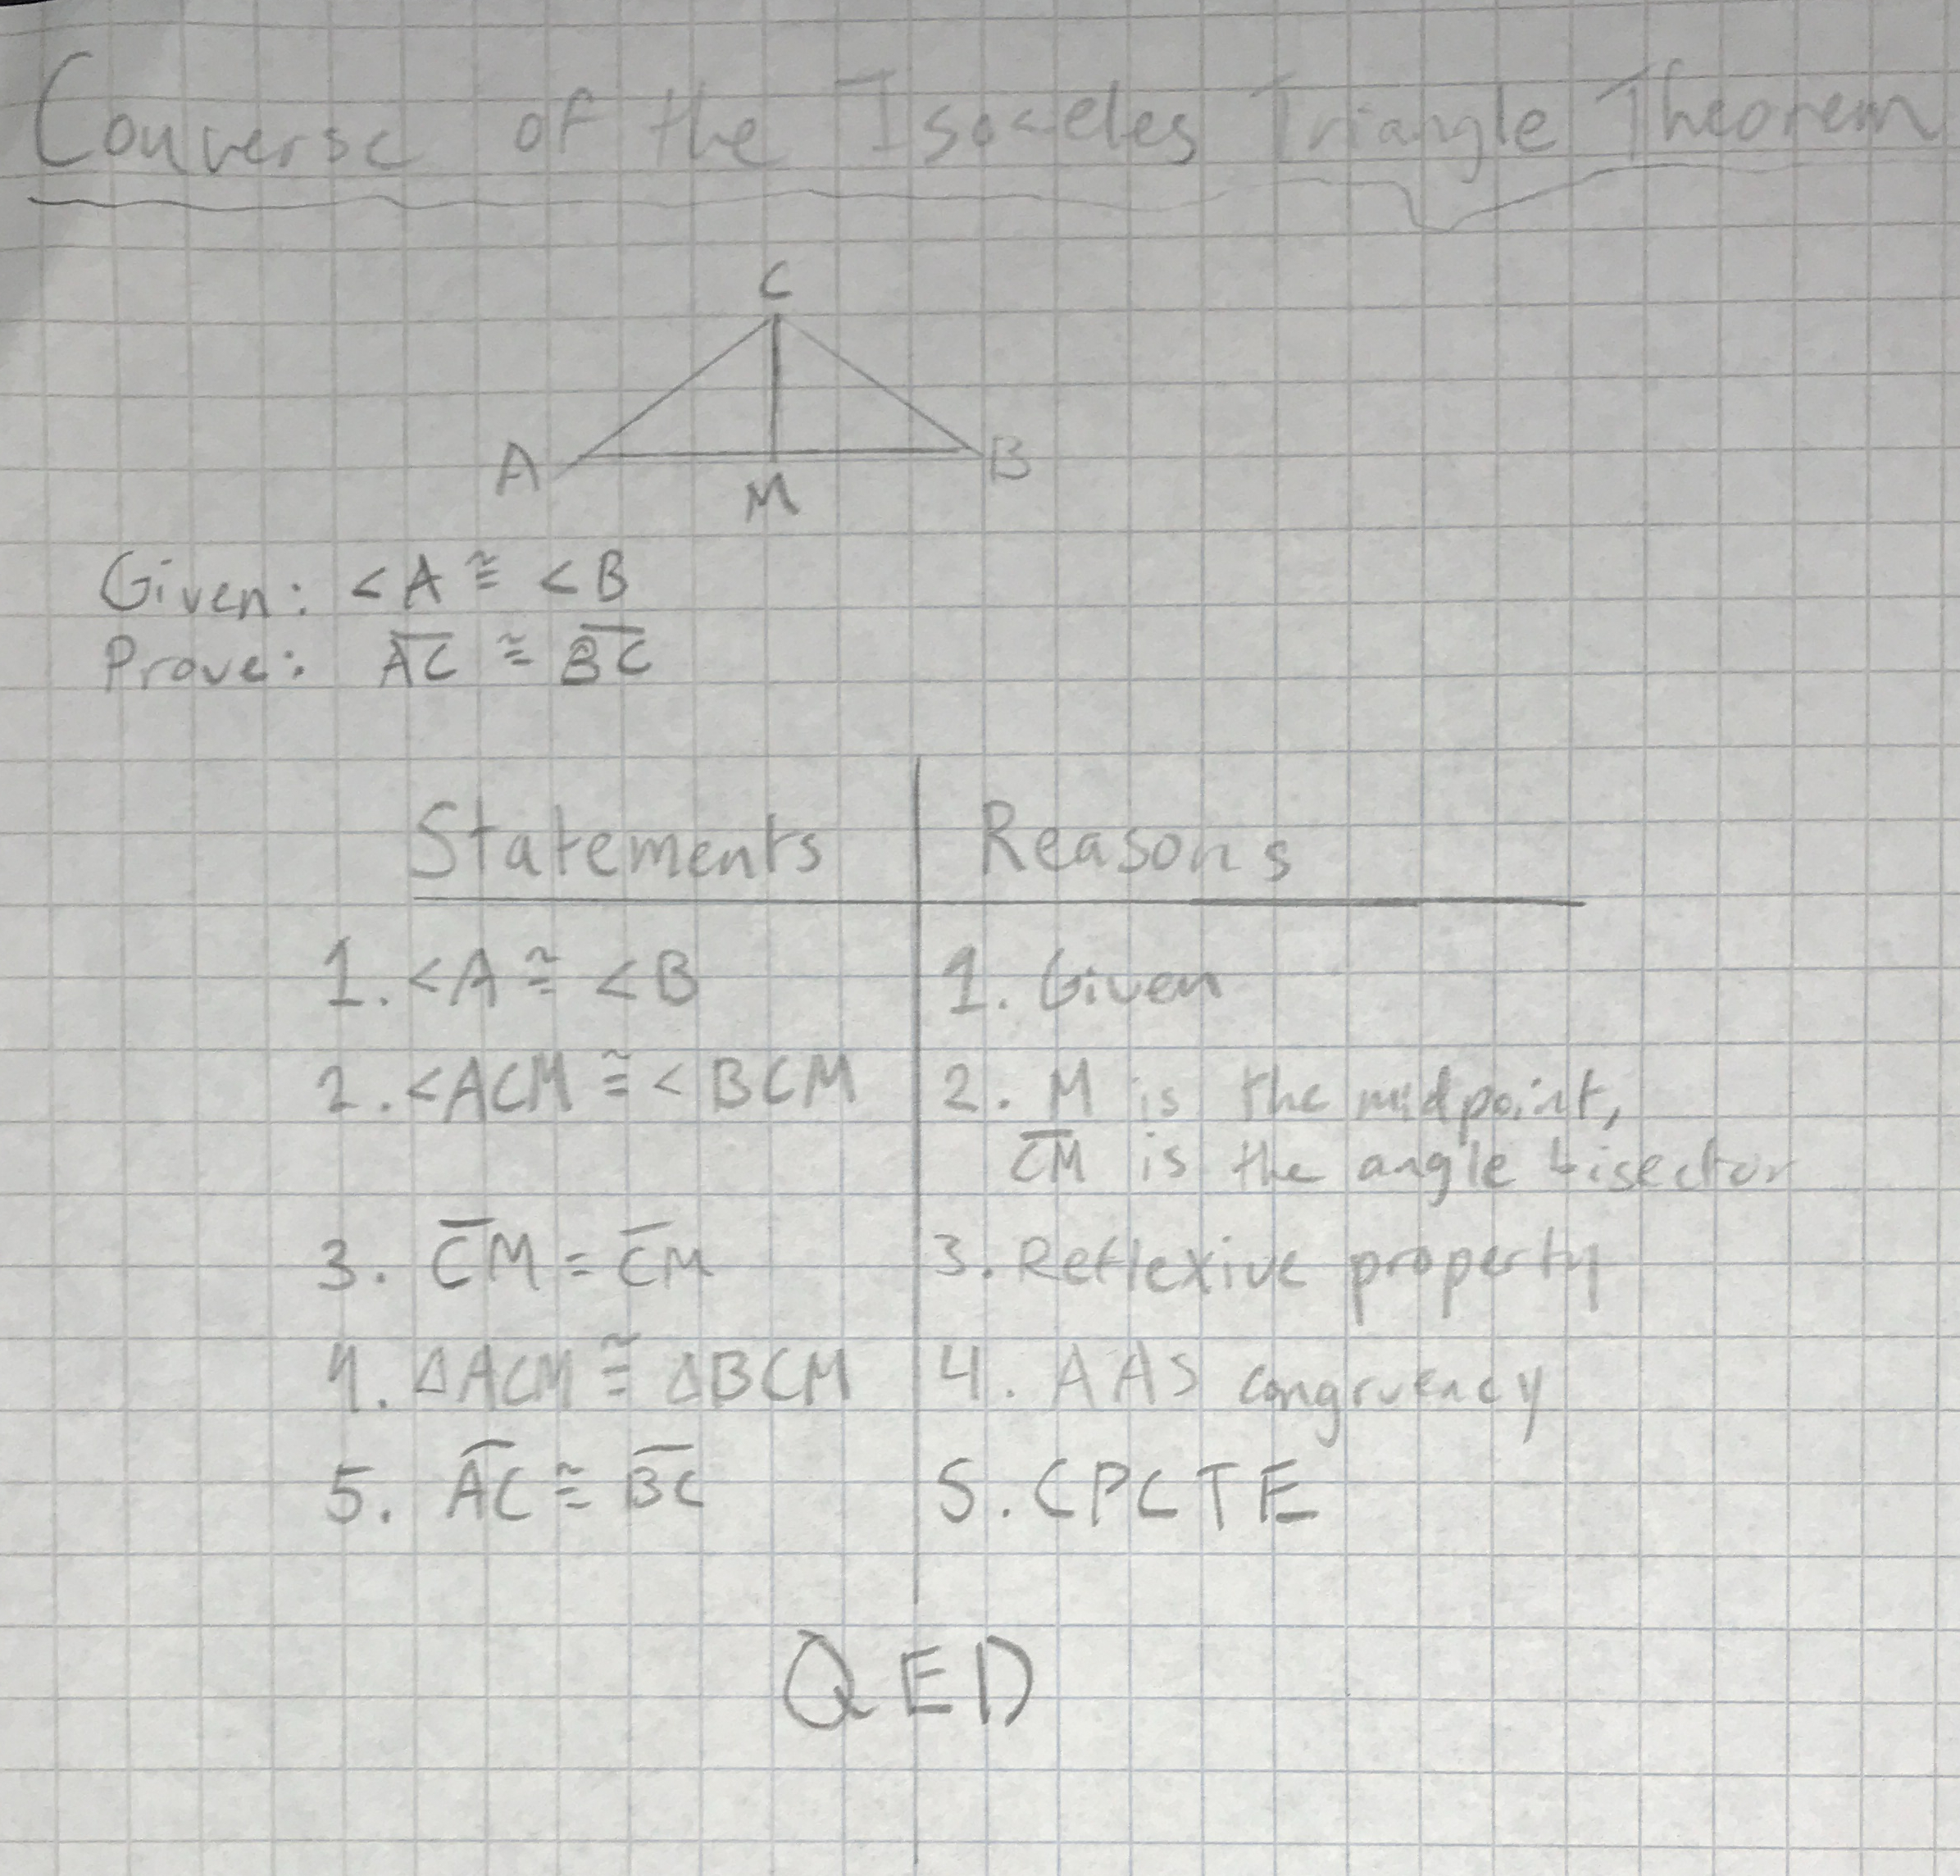 Converse of the Isoceles Triangle Theorem
C
A
B
M
Given: <A ≅ <B
Prove: A̅C̅ ≅ B̅C̅
Statements
Reasons
1. <A ≅ <B
1. Given
2. <ACM ≅ <BCM
2. M is the midpoint,
C̅M̅ is the angle bisector
3. C̅M̅ = C̅M̅
3. Reflexive property
4. ΔACM ≅ ΔBCM
4. AAS congruency
5. A̅C̅ ≅ B̅C̅
5. CPCTE
QED